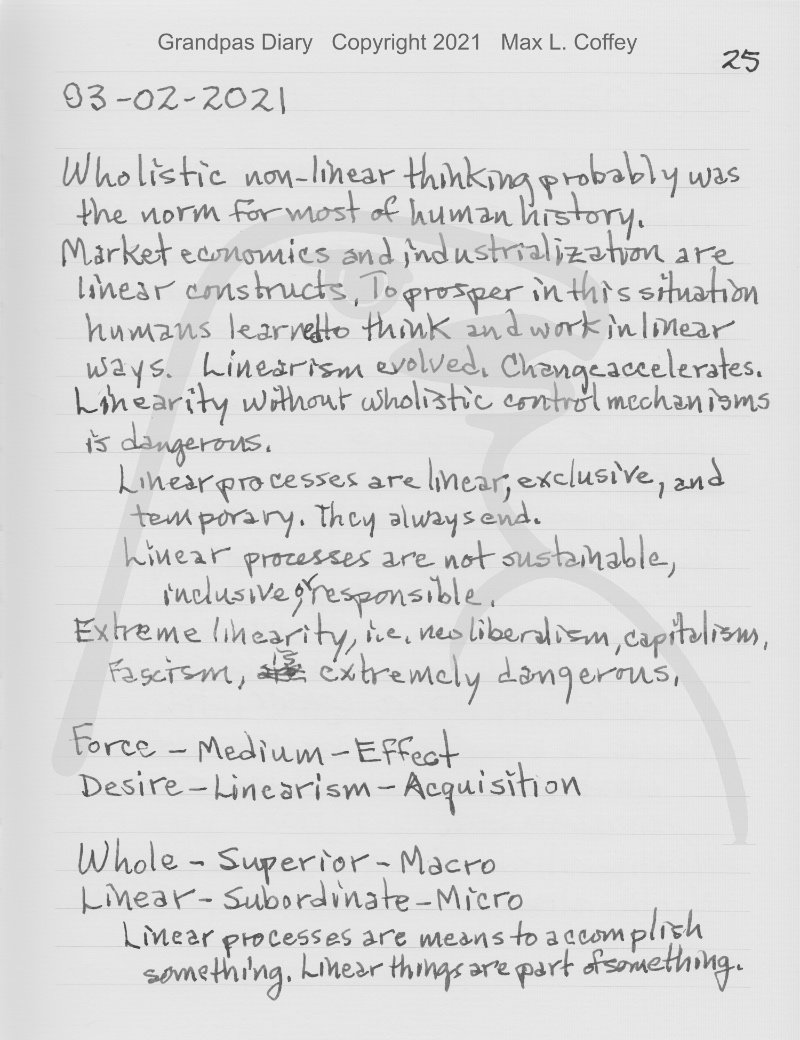 Grandpas Diary Copyright 2021 Max L. Coffey
25
03-02-2021
Wholistic non-linear thinking probably was
the norm for most of human history.
Market economics and industrialization are
linear constructs. To prosper in this situation
humans learned to think and work in linear
ways. Linearism evolved. Change accelerates.
Linearity without wholistic control mechanisms
is dangerous.
Linear processes are linear, exclusive, and
temporary. They always end.
Linear processes are not sustainable,
inclusive, or responsible.
Extreme linearity, i.e. neoliberalism, capitalism,
Fascism, is extremely dangerous.
Force - Medium - Effect
Desire - Linearism - Acquisition
Whole - Superior - Macro
Linear - Subordinate - Micro
Linear processes are means to accomplish
something. Linear things are part of something.